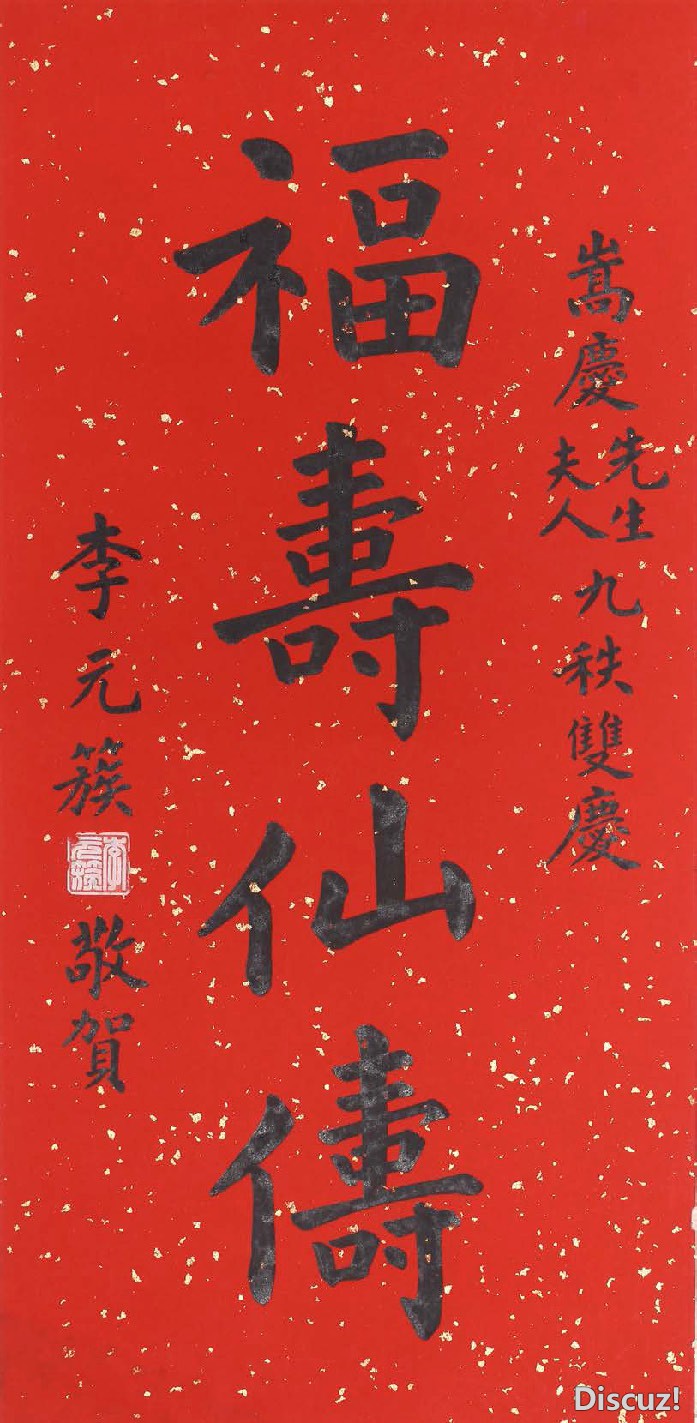 嵩慶先生夫人九秩雙慶
福壽仙儔
李元簇
敬賀
Discuz!